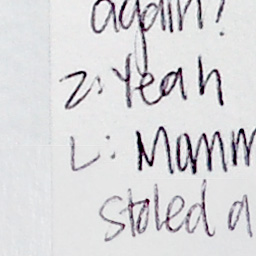 again?
Z: Yeah
L: Mamm
staled a